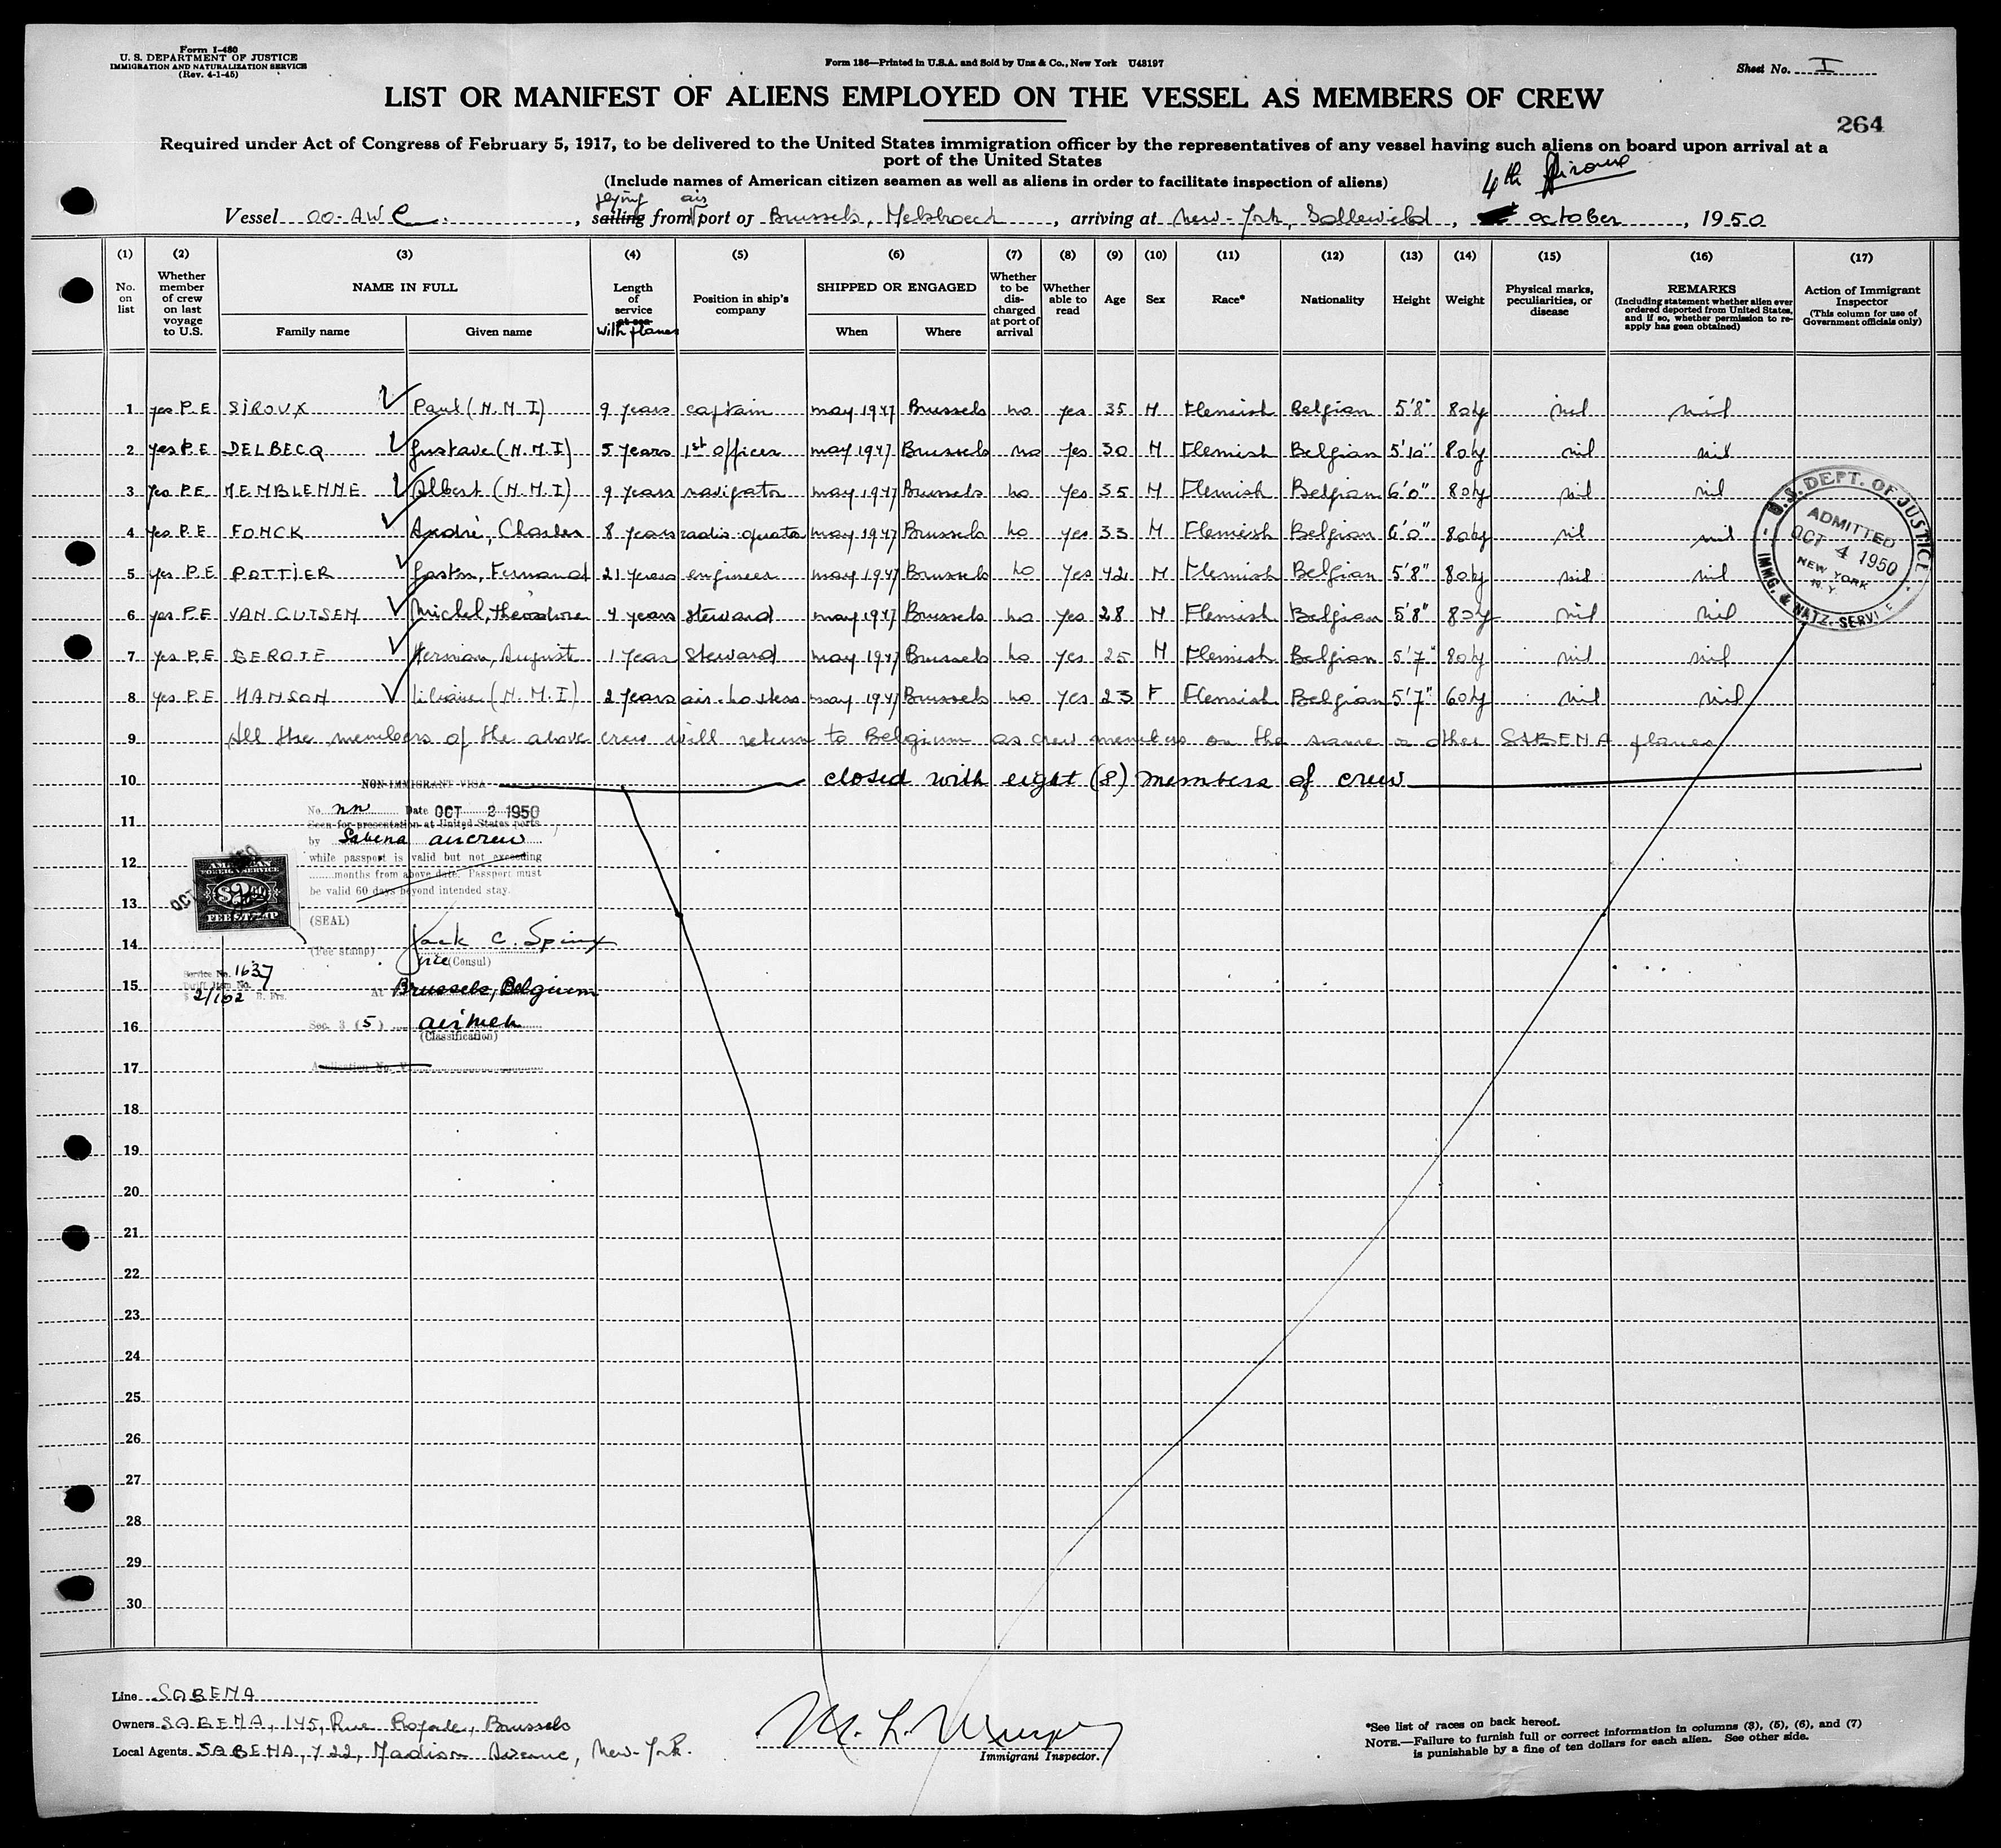 Form I-480
U. S. DEPARTMENT OF JUSTICE
IMMIGRATION AND NATURALIZATION SERVICE
(Rev. 4-1-45)
Form 186—Printed in U.S.A. and Sold by Unz & Co., New York U48197
Sheet No. I
LIST OR MANIFEST OF ALIENS EMPLOYED ON THE VESSEL AS MEMBERS OF CREW
264
Required under Act of Congress of February 5, 1917, to be delivered to the United States immigration officer by the representatives of any vessel having such aliens on board upon arrival at a
port of the United States
(Include names of American citizen seamen as well as aliens in order to facilitate inspection of aliens)
4th
flying air
Vessel OO-AWC, sailing from port of Brussels, Melsbroeck, arriving at New-York, october, 1950
(1) (2) (3) (4) (5) (6) (7) (8) (9) (10) (11) (12) (13) (14) (15) (16) (17)
No. on list
Whether member of crew on last voyage to U.S.
NAME IN FULL
Family name Given name
Length of service at sea
with planes
Position in ship's company
SHIPPED OR ENGAGED
When Where
Whether to be discharged at port of arrival
Whether able to read
Age
Sex
Race*
Nationality
Height
Weight
Physical marks, peculiarities, or disease
REMARKS
(Including statement whether alien ever ordered deported from United States, and if so, whether permission to re-apply has geen obtained)
Action of Immigrant Inspector
(This column for use of Government officials only)
1 yes P.E SIROUX Paul (N.M.I) 9 years captain may 1947 Brussels no yes 35 M Flemish Belgian 5'8" 80kg nil nil
2 yes P.E DELBECQ Gustave (N.M.I) 5 years 1st officer may 1947 Brussels no yes 30 M Flemish Belgian 5'10" 80kg nil nil
3 yes P.E MEMBLENNE Albert (N.M.I) 9 years navigator may 1947 Brussels no yes 35 M Flemish Belgian 6'0" 80kg nil nil
4 yes P.E FONCK André, Charles 8 years radio-operator may 1947 Brussels no yes 33 M Flemish Belgian 6'0" 80kg nil nil
5 yes P.E POTTIER Gaston, Fernand 21 years engineer may 1947 Brussels no yes 42 M Flemish Belgian 5'8" 80kg nil nil
6 yes P.E VAN CUTSEM Michel, Théodore 4 years steward may 1947 Brussels no yes 28 M Flemish Belgian 5'8" 80kg nil nil
7 yes P.E BEROTE Herman, Auguste 1 year steward may 1947 Brussels no yes 25 M Flemish Belgian 5'7" 80kg nil nil
8 yes P.E HANSON Liliane (N.M.I) 2 years air-hostess may 1947 Brussels no yes 23 F Flemish Belgian 5'7" 60kg nil nil
9 All the members of the above crew will return to Belgium as crew members on the same or other SABENA planes
10 closed with eight (8) members of crew
U.S. DEPT. OF JUSTICE
ADMITTED
OCT 4 1950
NEW YORK
N. Y.
IMMG. & NATZ. SERVICE
NON-IMMIGRANT VISA
No. nn Date OCT 2 1950
Seen for presentation at United States ports
by Sabena aircrew
while passport is valid but not exceeding
months from above date. Passport must
be valid 60 days beyond intended stay.
(SEAL)
(Fee stamp)
AMERICAN
FOREIGN SERVICE
$2.00
FEE STAMP
OCT
Jack C.
Vice (Consul)
Service No. 1637
Tariff Item No.
$ 2/102 B. Frs.
At Brussels, Belgium
Sec. 3 (5) airmen
(Classification)
Application No. V
11
12
13
14
15
16
17
18
19
20
21
22
23
24
25
26
27
28
29
30
Line SABENA
Owners SABENA, 145, Rue Royale, Brussels
Local Agents SABENA, 422, Madison Avenue, New-York.
Immigrant Inspector.
*See list of races on back hereof.
NOTE.—Failure to furnish full or correct information in columns (3), (5), (6), and (7)
is punishable by a fine of ten dollars for each alien. See other side.